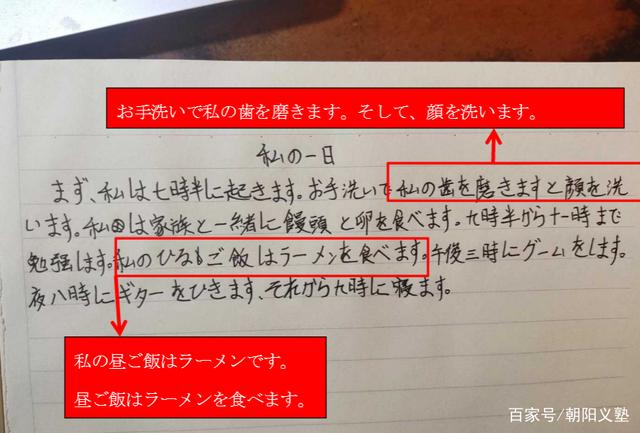 お手洗いで私の歯を磨きます。そして、顔を洗います。
私の一日
まず、私は七時半に起きます。お手洗いで私の歯を磨きますと顔を洗
います。私は家族と一緒に饅頭と卵を食べます。九時半から十一時まで
勉強します。私のひるもご飯はラーメンを食べます。午後三時にゲームをします。
夜八時にギターをひきます、それから九時に寝ます。
私の昼ご飯はラーメンです。
昼ご飯はラーメンを食べます。
百家号/朝阳义塾